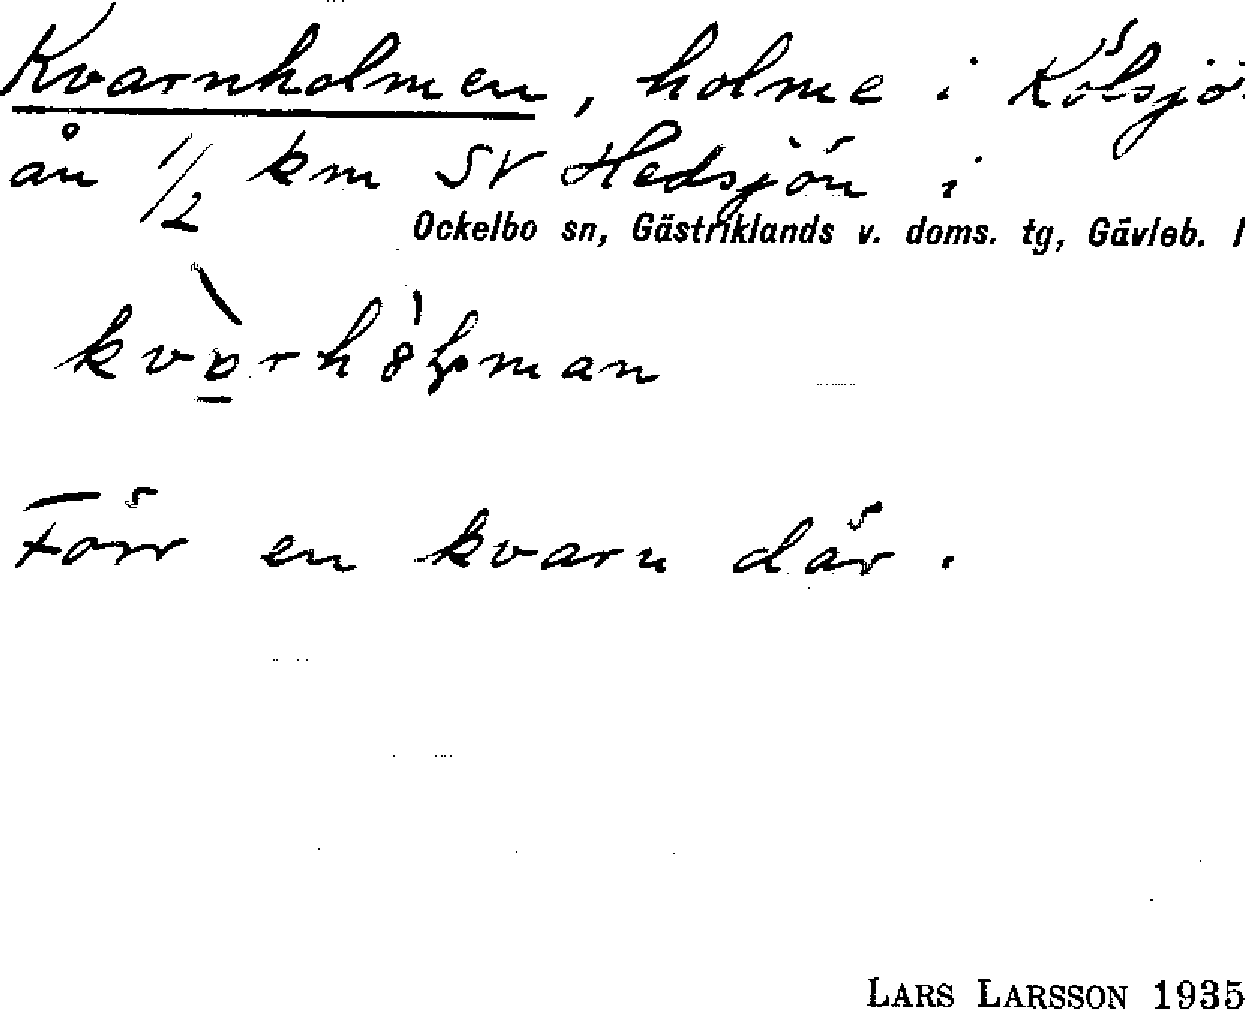 Kvarnholmen, holme i Kölsjö-
ån 1/2 km SV Hedsjön i
Ockelbo sn, Gästriklands v. doms. tg, Gävleb. l
Förr en kvarn där.
LARS LARSSON 1935